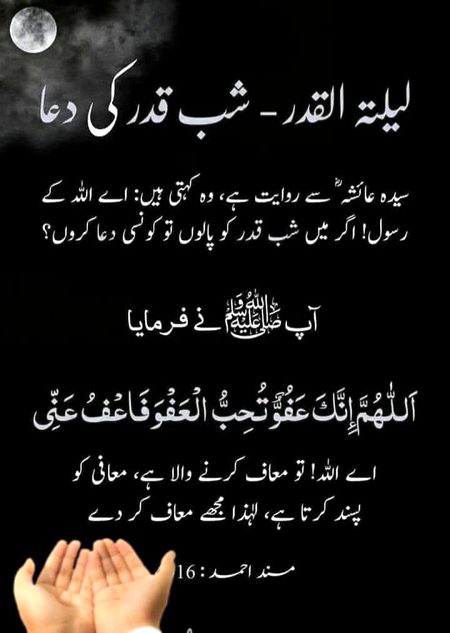 لیلتہ القدر - شب قدر کی دعا
سیدہ عائشہ ؓ سے روایت ہے، وہ کہتی ہیں: اے اللہ کے
رسول! اگر میں شب قدر کو پالوں تو کونسی دعا کروں؟
آپ ﷺ نے فرمایا
اَللّٰهُمَّ إِنَّكَ عَفُوٌّ تُحِبُّ الْعَفْوَ فَاعْفُ عَنِّی
اے اللہ! تو معاف کرنے والا ہے، معافی کو
پسند کرتا ہے، لہٰذا مجھے معاف کر دے
مسند احمد :